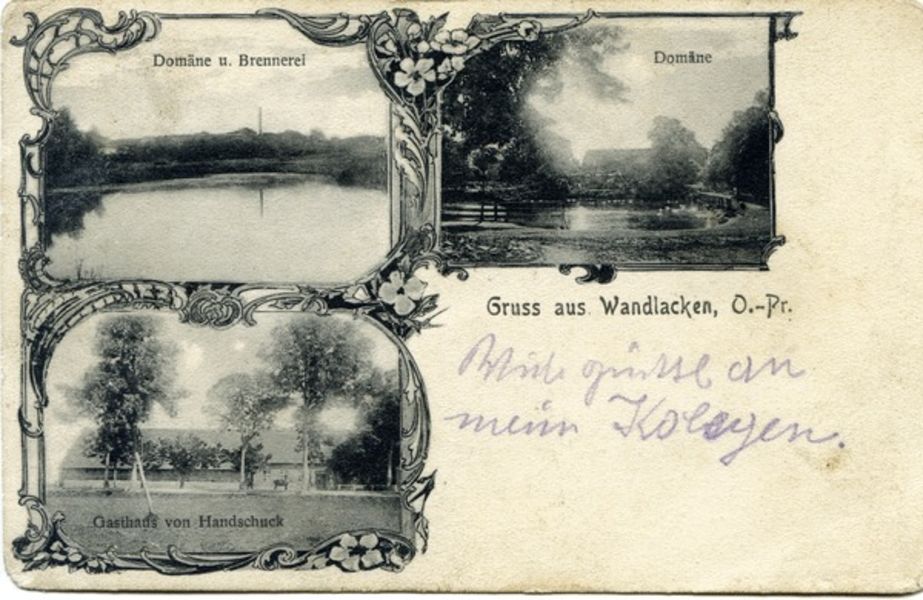 Domäne u. Brennerei
Domäne
Gruss aus Wandlacken, O.-Pr.
an
Kolegen.
Gasthaus von Handschuck